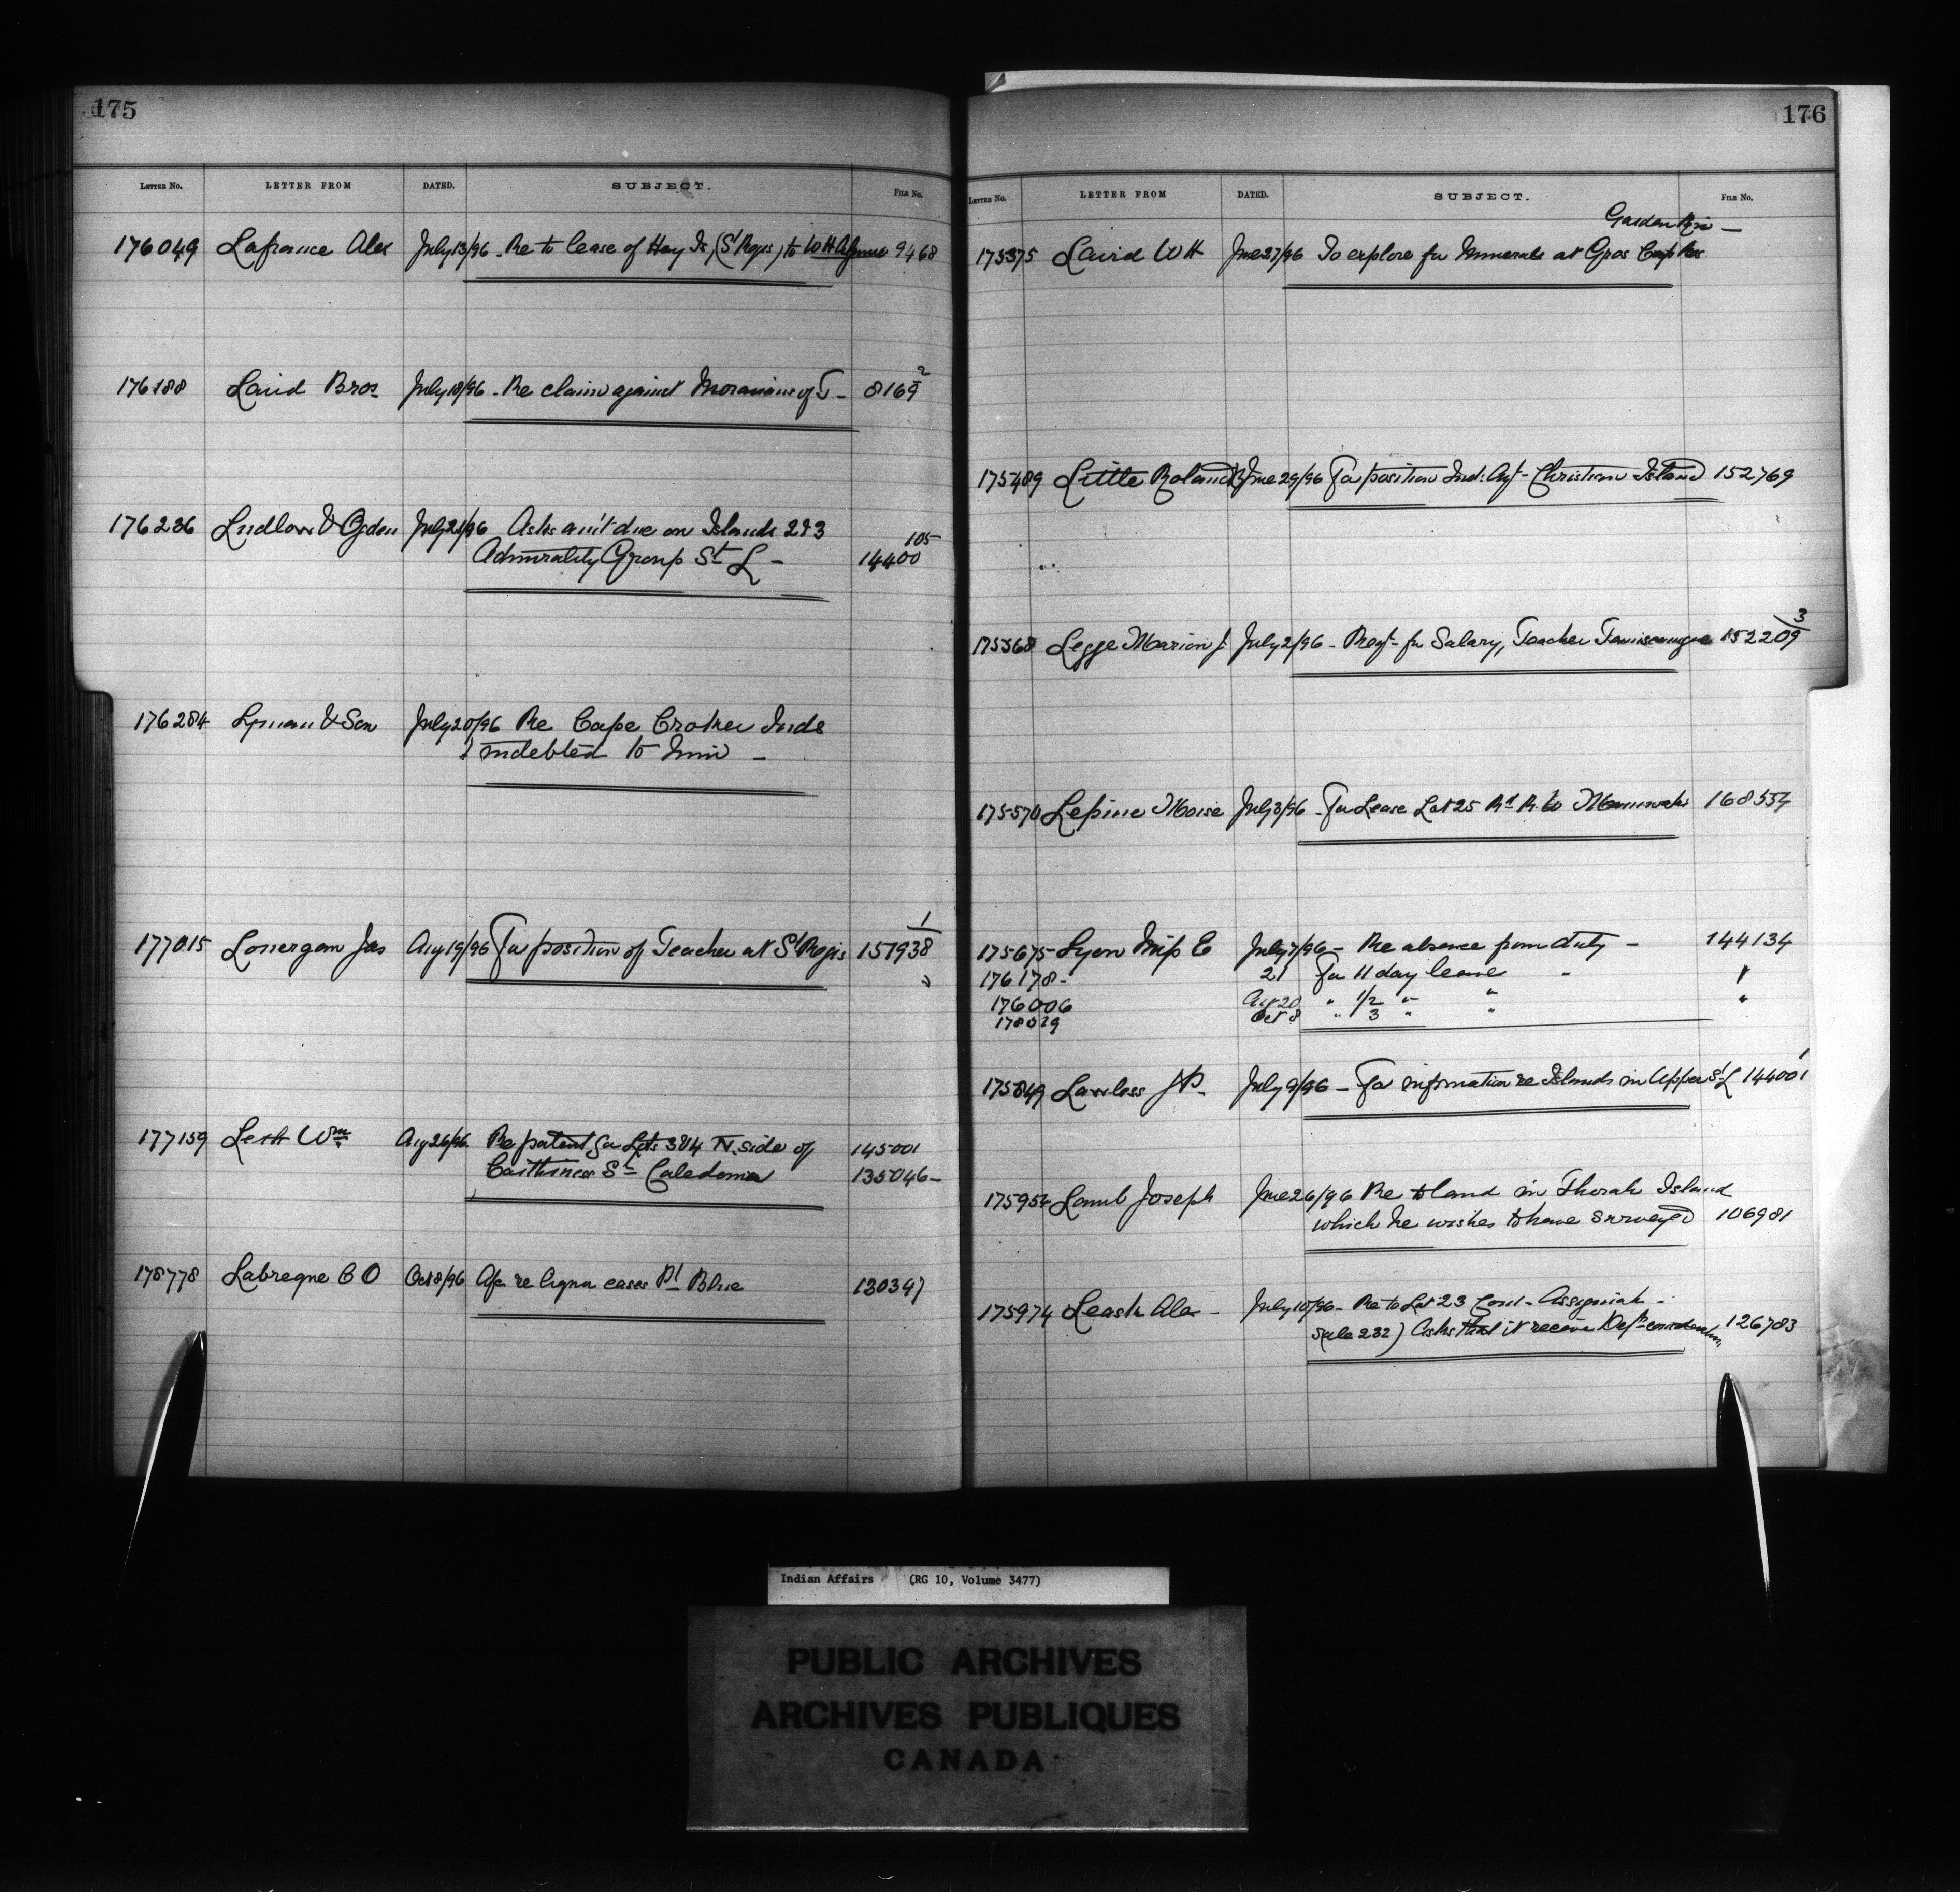 175
LETTER NO. LETTER FROM DATED. SUBJECT. FILE NO.
176049 Lafrance Alex July 13/96 - Re to lease of Hay Is, (St Regis) to WH 9468
176188 Laird Bros July 18/96 - Re claim against Moravians of T - 8169 2
176236 Ludlow & Ogden July 21/96 Asks am't due on Islands 2 & 3 105
Admirality Group St L - 14400
176284 Lyman & Son July 20/96 Re Cape Croker Inds
indebted to him -
177015 Lonergan Jas Aug 19/96 For position of Teacher at St Regis 151938 1
"
177159 Leith Wm Aug 26/96 Re patent for Lots 3 & 4 N. side of 145001
Caithness St Caledonia 135046 -
178778 Labreque C O Oct 8/96 re cases Pt Blue 130347
176
LETTER NO. LETTER FROM DATED. SUBJECT. FILE NO.
Garden Riv -
175375 Laird WH June 27/96 To explore for Minerals at Gros Cap Res
175489 Little Roland June 29/96 For position Ind: Agt - Christian Island 152769
175568 Legge Marion J. July 2/96 - Reqt - for Salary, Teacher Temiscamingue 152209 3
175570 Lepine Moise July 3/96 - For Lease Lot 25 Maniwaki 168554
175675 Lyon Miss E July 7/96 - Re absence from duty - 144134
176178 - 21 For 11 day leave " "
176006 20 " 1/2 " " "
178029 Oct 8 " 3 " "
175849 Lawless JP. July 9/96 - For information re Islands in Upper St L 144001
175954 Lamb Joseph June 26/96 Re to land in Thorah Island
which he wishes to have surveyed 106981
175974 Leask Alex - July 10/96 - Re to Lot 23 Con 1 - Assiginack -
Sale 232) Asks that it receive Dept consideration 126783
Indian Affairs (RG 10, Volume 3477)
PUBLIC ARCHIVES
ARCHIVES PUBLIQUES
CANADA